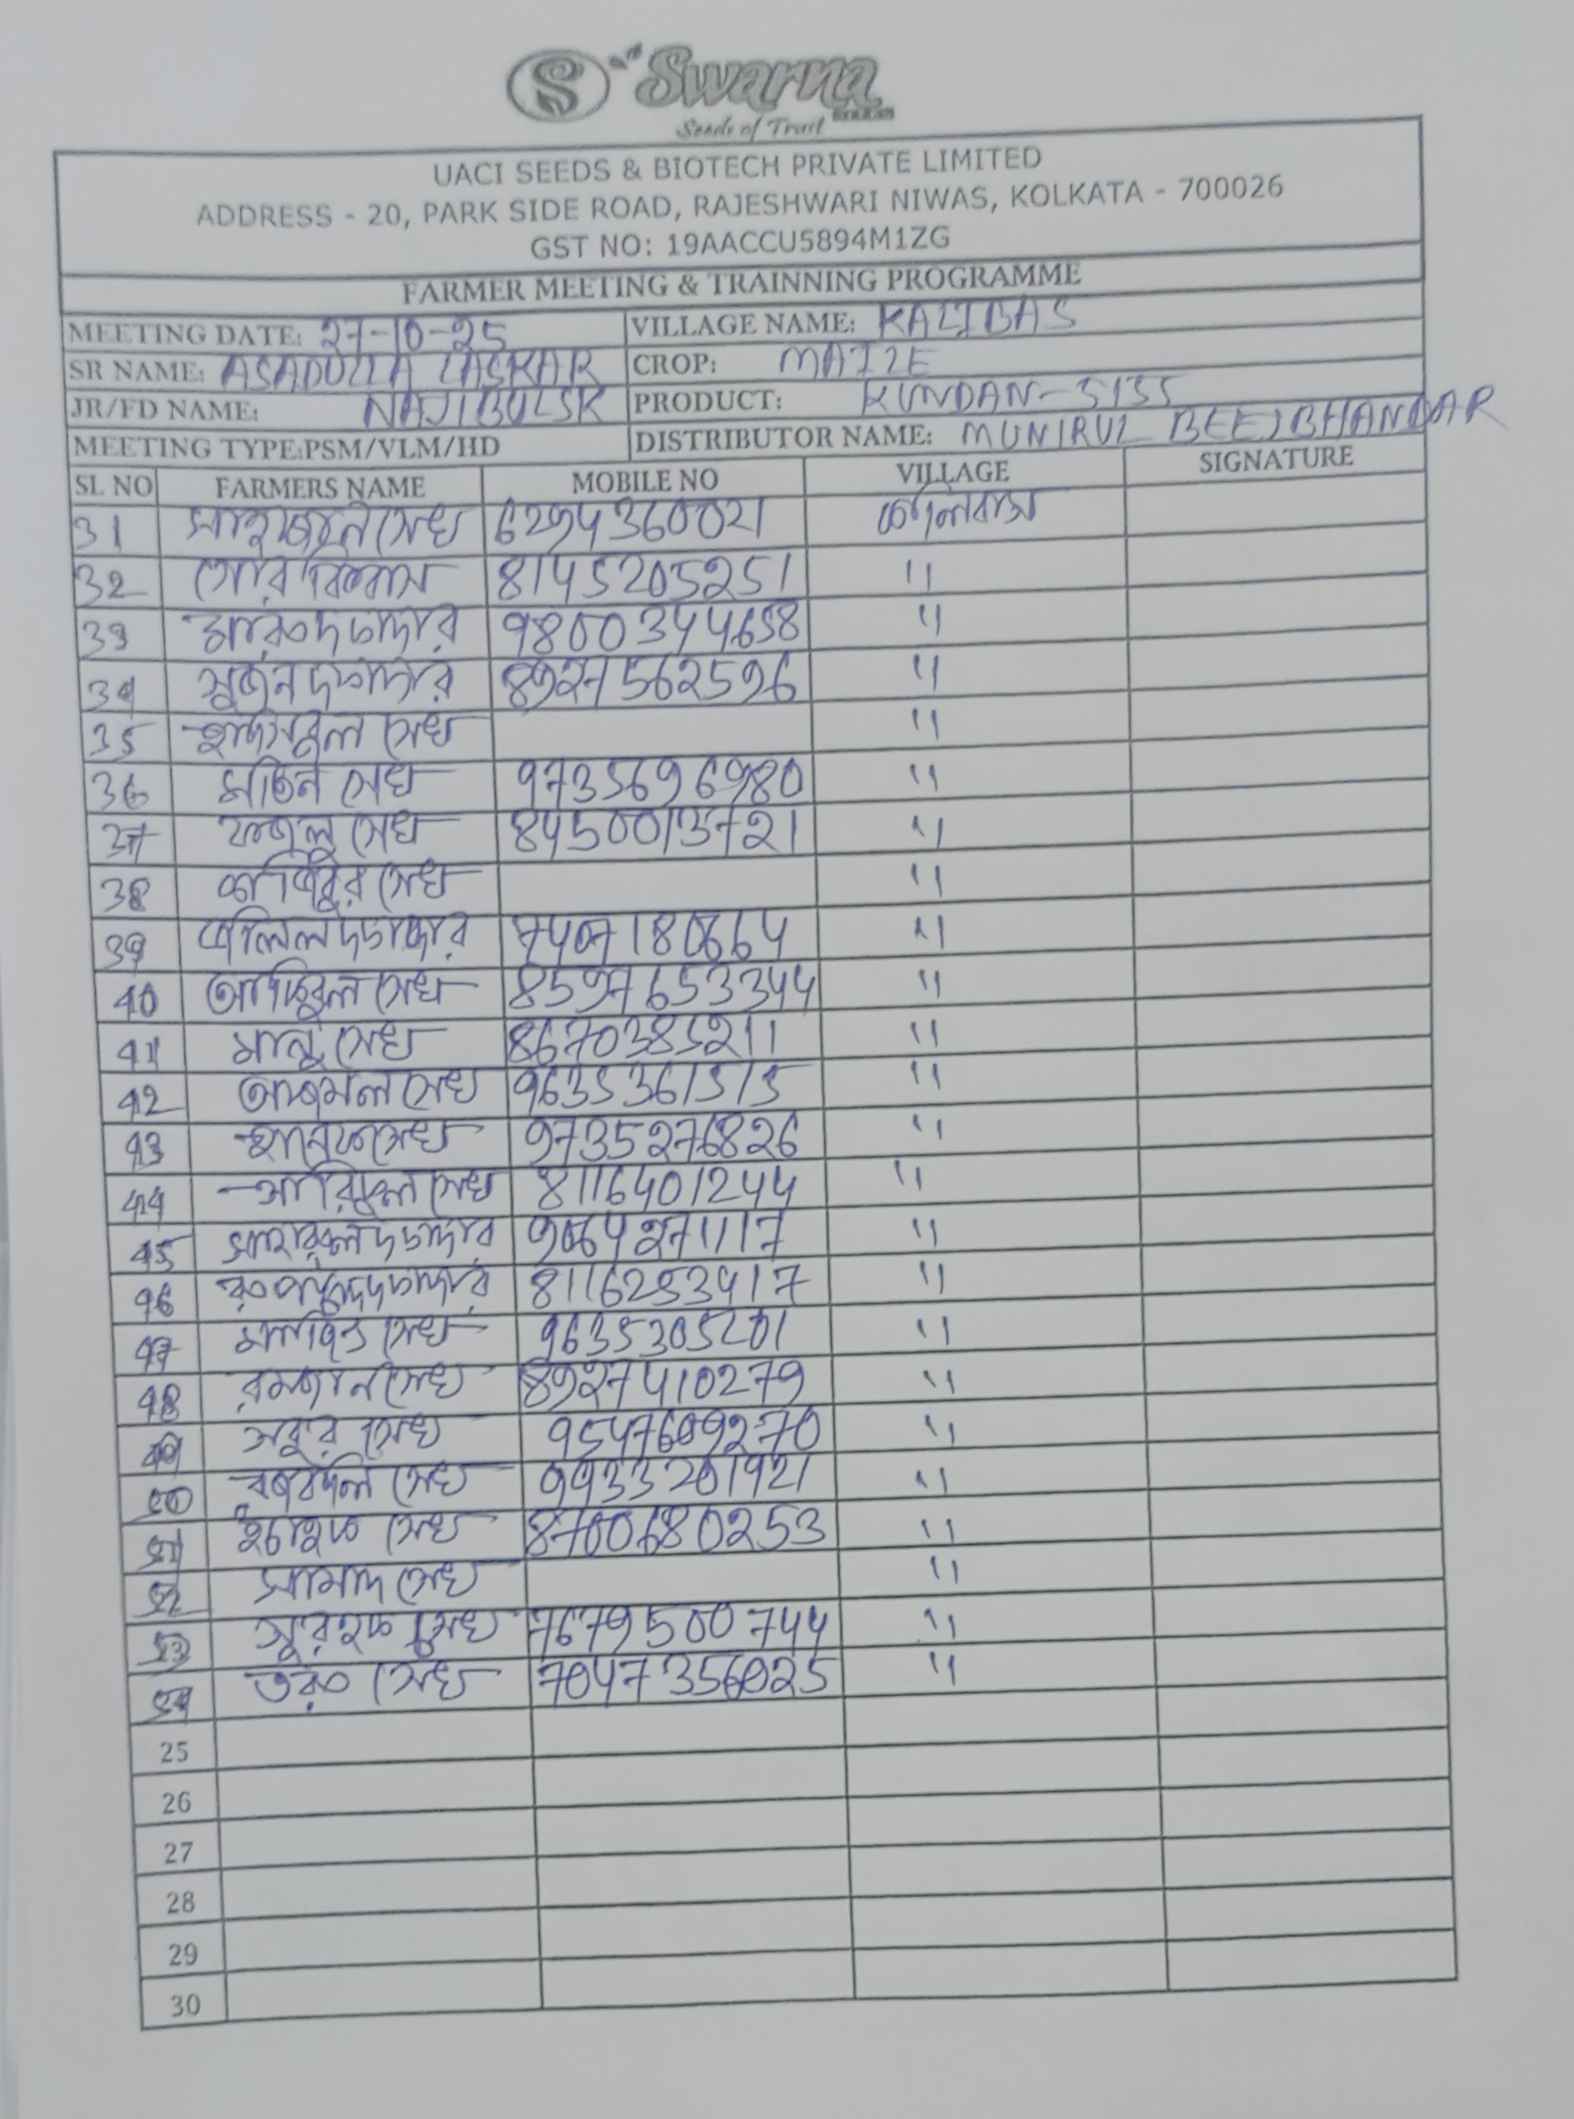 Swarna
Seeds of Trust
UACI SEEDS & BIOTECH PRIVATE LIMITED
ADDRESS - 20, PARK SIDE ROAD, RAJESHWARI NIWAS, KOLKATA - 700026
GST NO: 19AACCU5894M1ZG
FARMER MEETING & TRAINNING PROGRAMME
MEETING DATE: 27-10-25 VILLAGE NAME: KALIBAS
SR NAME: ASADULLA LASKAR CROP: MAIZE
JR/FD NAME: NAJIBULSK PRODUCT: KUNDAN-5135
MEETING TYPE:PSM/VLM/HD DISTRIBUTOR NAME: MUNIRUL BEEJ BHANDAR
SL NO FARMERS NAME MOBILE NO VILLAGE SIGNATURE
31 সেখ 6294360021
32 8145205251 "
33 দফাদার 9800344658 "
34 সুজন দফাদার 8927562596 "
35 সেখ "
36 মতিন সেখ 9735696980 "
37 ফজলু সেখ 8450013721 "
38 সেখ "
39 দফাদার 7407180664 "
40 সেখ 8597653344 "
41 সেখ 8670385211 "
42 সেখ 9635361515 "
43 সেখ 9735276826 "
44 সেখ 8116401244 "
45 দফাদার 9064271117 "
46 দফাদার 8116253417 "
47 সেখ 9635305201 "
48 রমজান সেখ 8927410279 "
49 সবুর সেখ 9547609270 "
50 সেখ 9933201921 "
51 সেখ 8700680253 "
52 সামাদ সেখ "
53 সেখ 7679500744 "
54 সেখ 7047356025 "
25
26
27
28
29
30